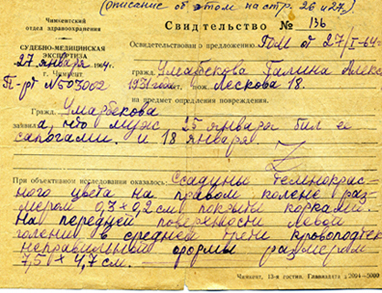 (описание об этом на стр. 26 и 27.)
Чимкентский
отдел здравоохранения
СУДЕБНО-МЕДИЦИНСКАЯ
ЭКСПЕРТИЗА
27 января
г. Чимкент
Свидетельство № 136
Освидетельствован о предложению ГОМ от 27/I-64
гражд. Умарбекова Галина Алекс
1931 Лескова 18.
на предмет определения повреждения.
Гражд. Умарбекова
заявил а что муж 15 января бил ее
сапогами. и 18 января
При объективном исследования оказалось: Ссадины темнокрас-
ного цвета на правом колене раз-
мером 0,7 х 0,2 см покрыты корками.
На передней поверхности левой
голени в средней трети кровоподтек
неправильной формы размером
7,5 х 4,7 см.
Чимкент, 13-я гостип. Главиздата 2004—5000